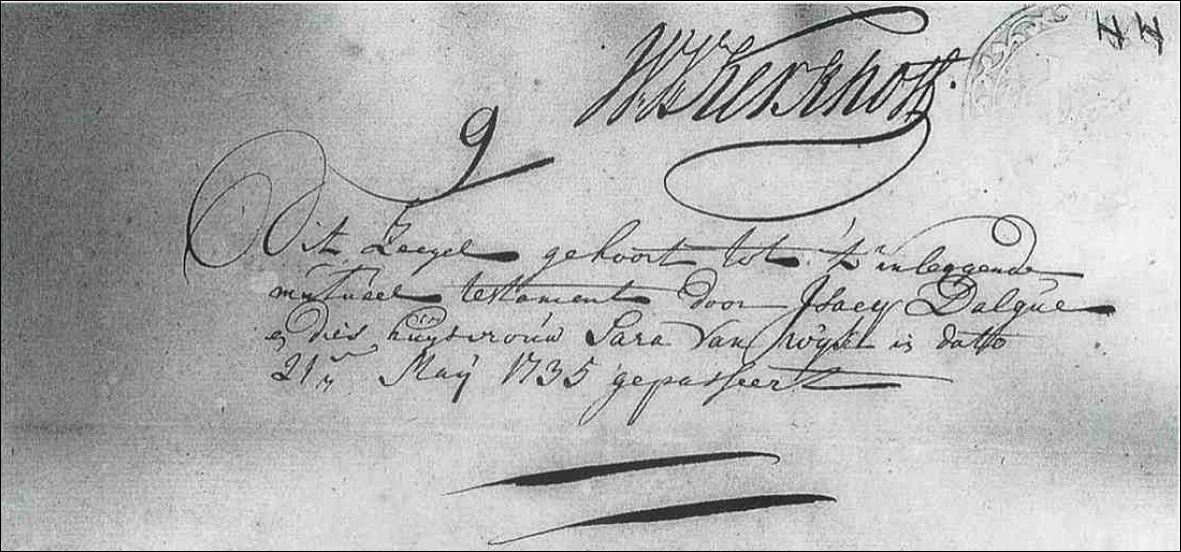 W: V: Kerkhoff.
9
Dit Zeegel gehoort tot 't inleggende
mutueel testament door Isacq Dalgue
en dies huijsvrouw Sara Van Wijk in datto
21en Maij 1735 gepasseert